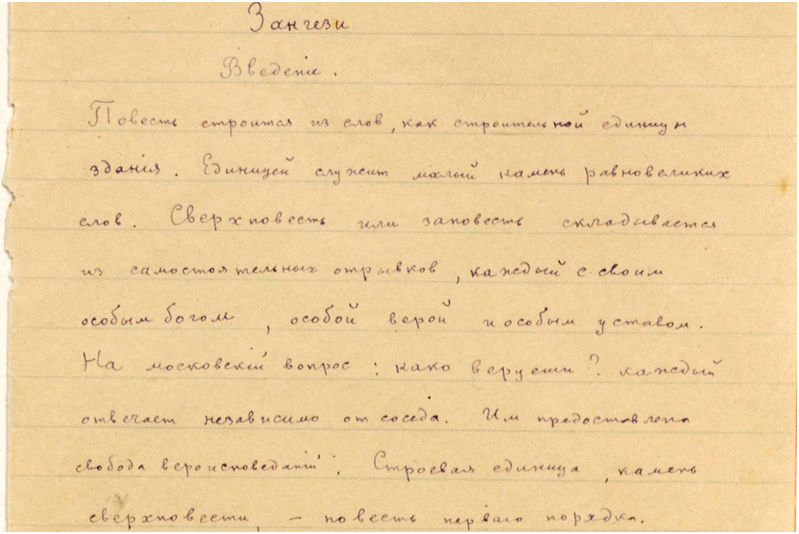 Зангези
Введение.
Повесть строится из слов, как строительной единицы
здания. Единицей служит малый камень равновеликих
слов. Сверхповесть или заповесть складывается
из самостоятельных отрывков, каждый с своим
особым богом, особой верой и особым уставом.
На московскій вопрос: како веруеши? каждый
отвечает независимо от соседа. Им предоставлена
свобода вероисповеданій. Строевая единица, камень
сверхповести, – повесть перваго порядка.